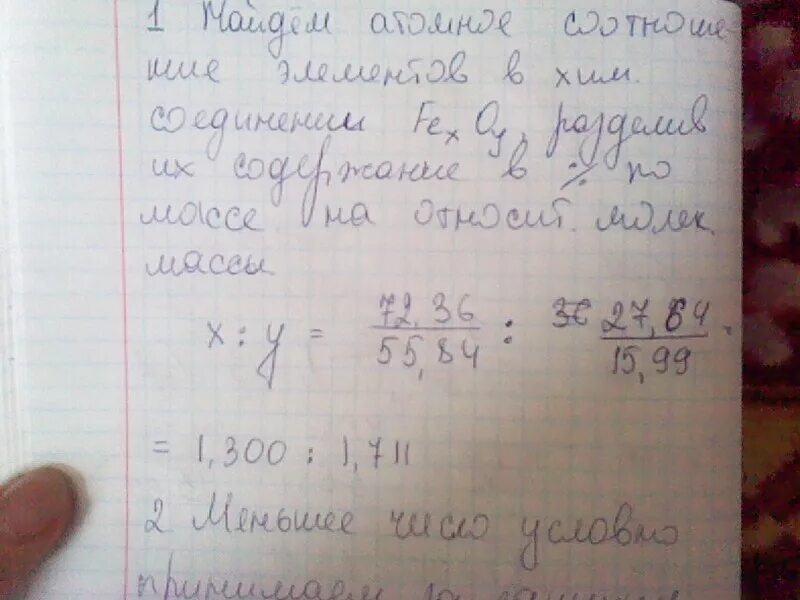 1 Найдём атомное соотноше
ние элементов в хим.
соединении FexOy, разделив
их содержание в % по
массе на относит. молек.
массы
x : y = 72,36/55,84 : 27,64/15,99
= 1,300 : 1,711
2 Меньшее число условно
принимаем за